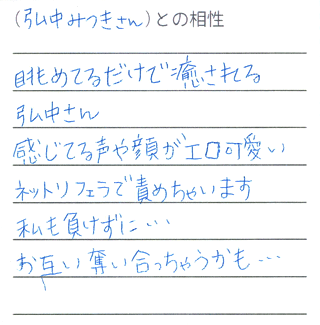 (弘中みつきさん)との相性
眺めてるだけで癒されてる
弘中さん
感じてる声や顔がエロ可愛い
ネットリフェラで責めちゃいます
私も負けずに・・・
お互い奪い合っちゃうかも・・・